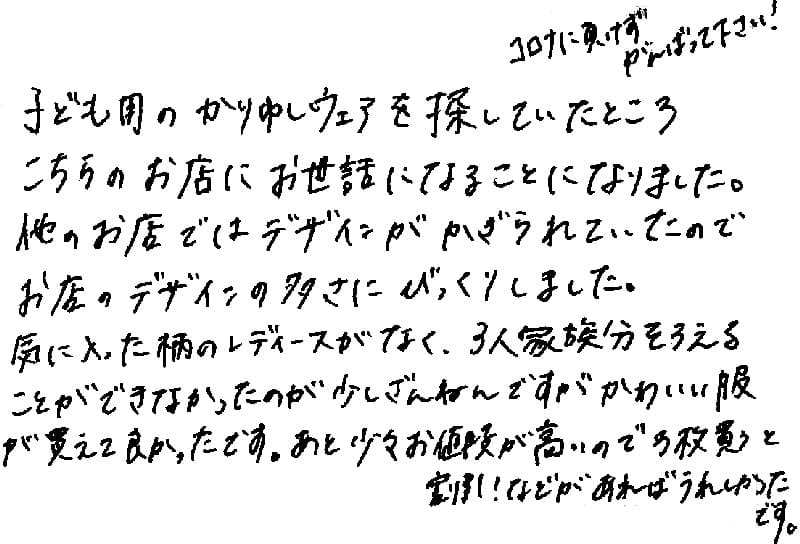 コロナに負けず
がんばって下さい!
子ども用のかりゆしウェアを探していたところ
こちらのお店にお世話になることになりました。
他のお店ではデザインがかぎられていたので
お店のデザインの多さにびっくりしました。
気に入った柄のレディースがなく、3人家族分そろえる
ことができなかったのが少しざんねんですがかわいい服
が買えて良かったです。あと少々お値段が高いので3枚買うと
割引!などがあればうれしかった
です。